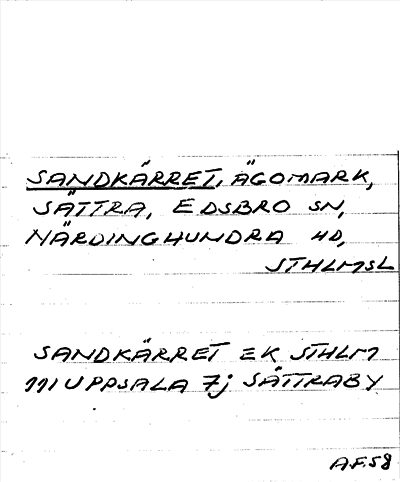 SANDKÄRRET, ÄGOMARK,
SÄTTRA, EDSBRO SN,
NÄRDINGHUNDRA HD,
STHLMSL
SANDKÄRRET EK STHLM
111 UPPSALA 7j SÄTTRABY
A.F.58